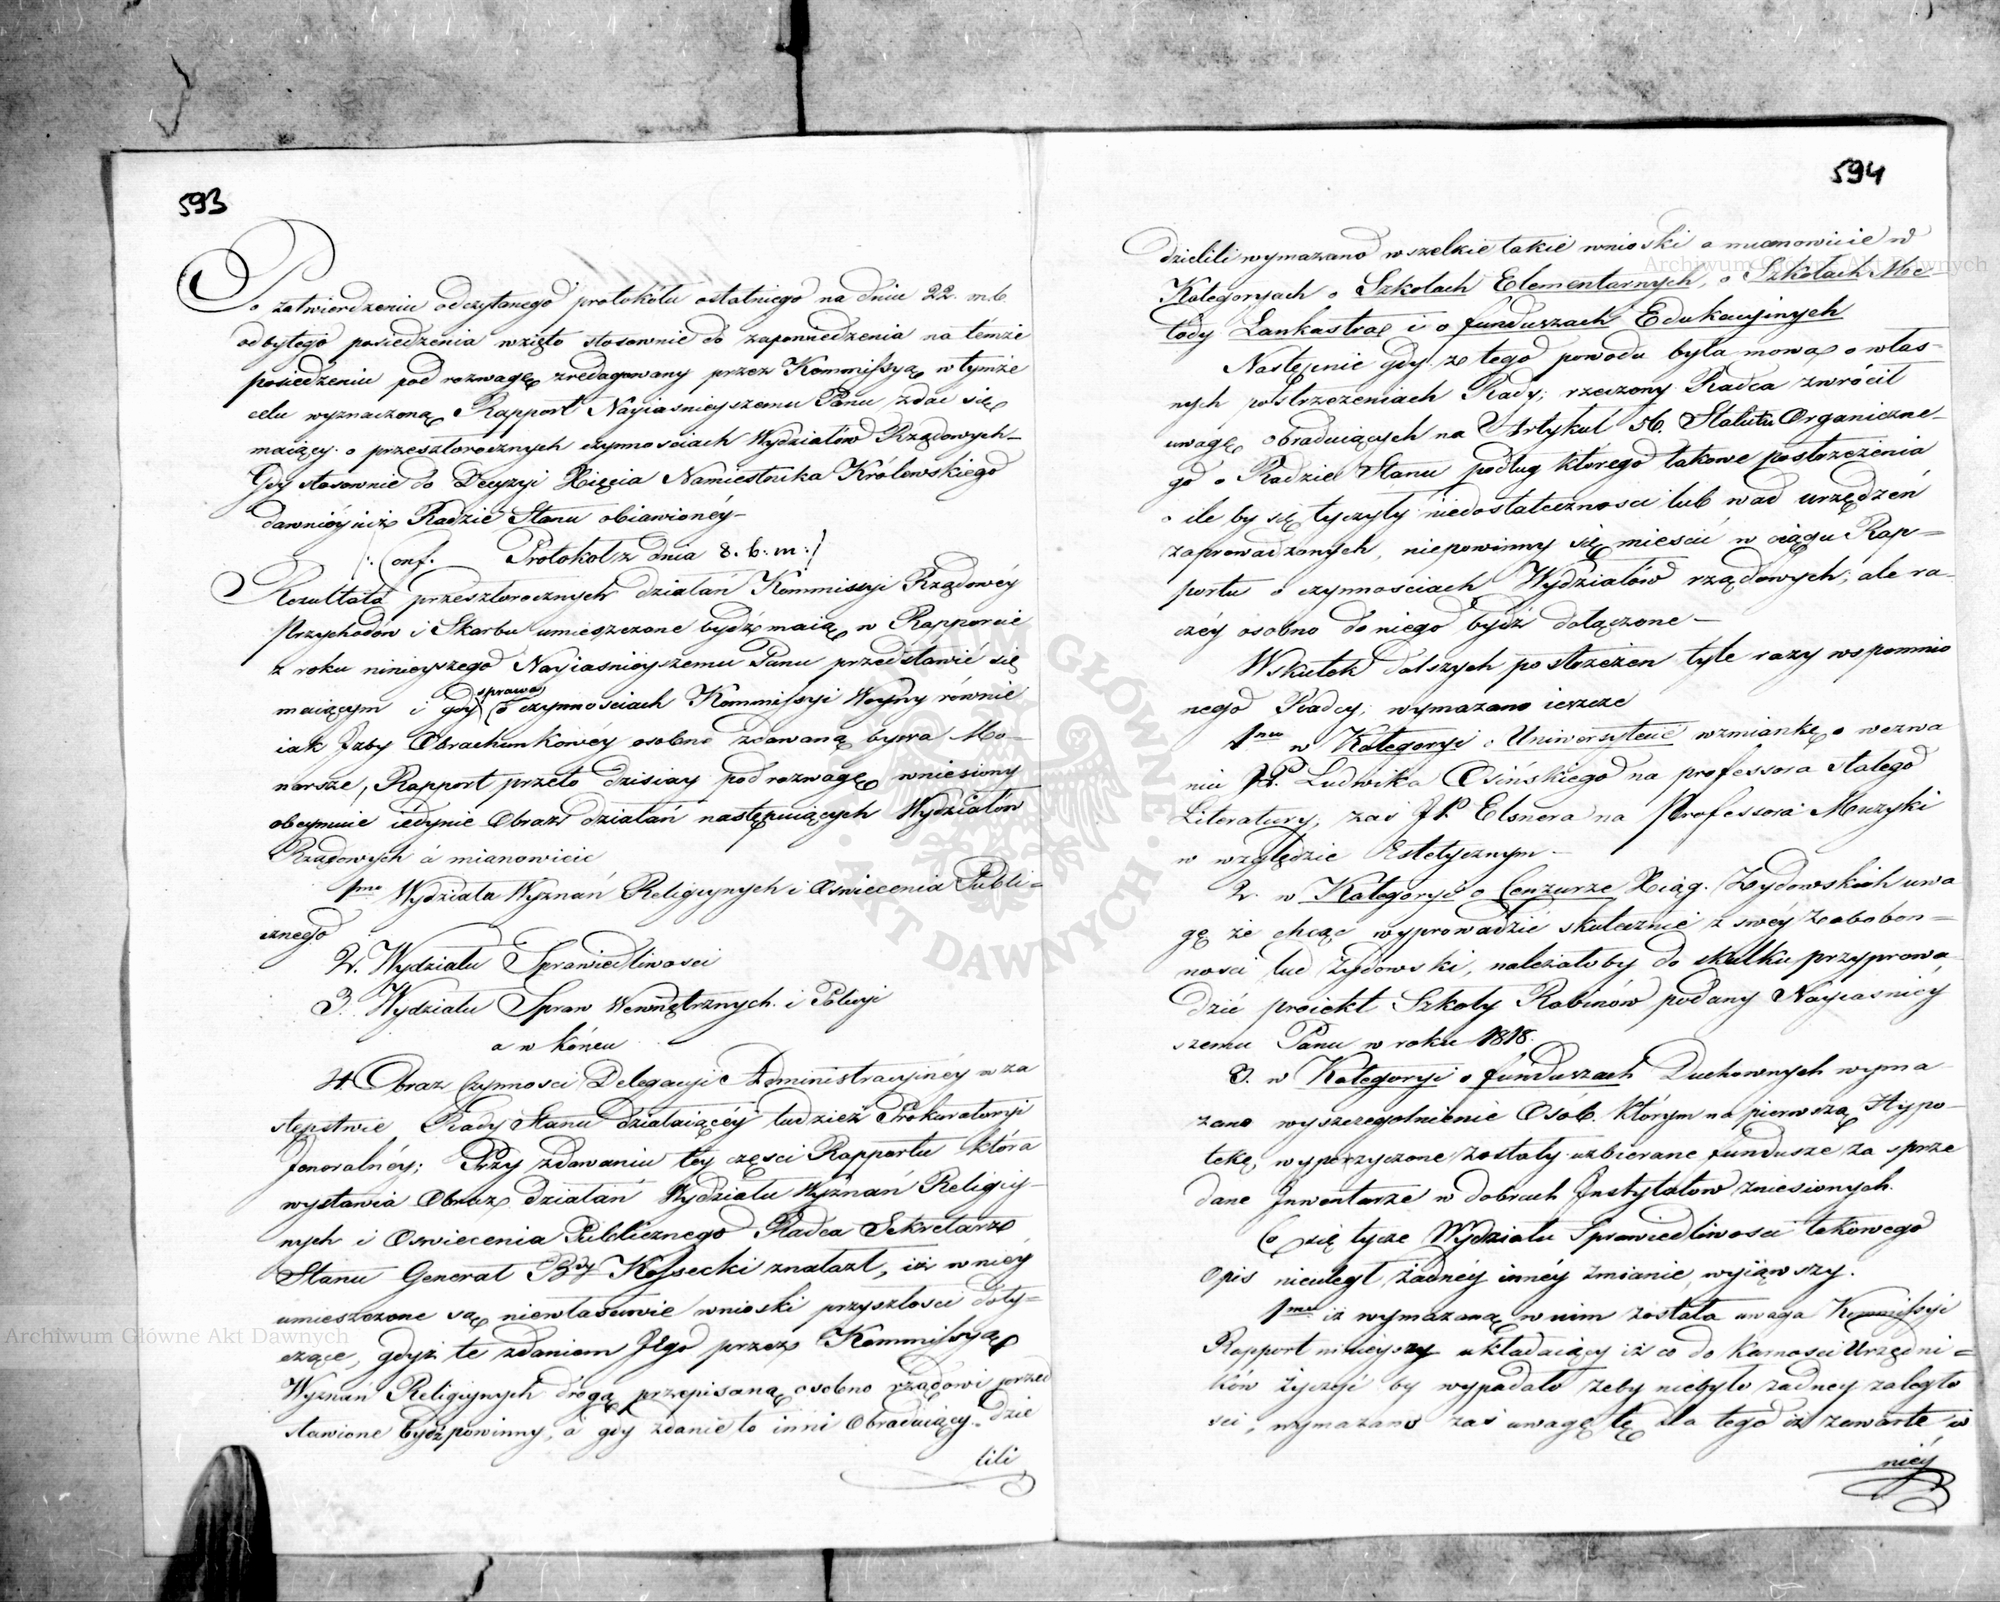 593
Po zatwierdzeniu odczytanego protokółu ostatniego na dniu 22. m.b.
odbytego posiedzenia wzięto stosownie do zapowiedzenia na témże
posiedzeniu pod rozwagę zredagowany przez Kommissyą w tymże
celu wyznaczoną Rapport Nayiaśnieyszemu Panu zdać się
maiący o przeszłorocznych czynnościach Wydziałów Rządowych_
Gdy stosownie do Decyzyi Xięcia Namiestnika Królewskiego
dawniéy już Radzie Stanu obiawionéy_
/: Conf. Protokol z dnia 8. b: m:/
Rezultata przeszłorocznych działań Kommissyi Rządowéy
Przychodów i Skarbu umieszczone bydź maią w Rapporcie
z roku ninieyszego Nayiaśniéyszemu Panu przedstawić się
maiącym i gdy sprawa o czynnościach Kommissyi Woyny równie
iak Izby Obrachunkowéy osobno zdawaną bywa Mo-
narsze, Rapport przeto dzisiay pod rozwagę wniesiony
obeymuie iedynie Obraz działań następuiących Wydziałów
Rządowych á mianowicie
1mo Wydziału Wyznań Religiynych i Oświecenia Publi=
cznego
2. Wydziału Sprawiedliwości
3. Wydziału Spraw Wewnętrznych i Policyi
a w końcu
4. Obraz Czynności Delegacyi Administracyinéy w za
stępstwie Rady Stanu działaiącéy tudzież Prokuratoryi
Jeneralnéy; Przy zdawaniu téy części Rapportu która
wystawia Obraz działań Wydziału Wyznań Religiy-
nych i Oświecenia Publicznego Radca Sekretarz
Stanu Generał Bdy Kossecki znalazł, iż w niéy
umieszczone są niewłaściwie wnioski przyszłości doty=
czące, gdyż te zdaniem Jego przez Kommissyą
Wyznań Religiynych drogą przepisaną osobno rządowi przed
stawione bydź powinny, á gdy zdanie to inni Obraduiący dzie
lili
594
dzielili wymazano wszelkie takie wnioski a mianowicie w
Kategoryach o Szkołach Elementarnych, o Szkołach Me-
tody Lankastra i o funduszach Edukacyinych
Następnie gdy z tego powodu była mowa o włas-
nych postrzeżeniach Rady, rzeczony Radca zwrócił
uwagę obraduiących na Artykuł 36. Statutu Organiczne-
go o Radzie Stanu podług którego takowe postrzeżenia
o ile by się tyczyły niedostateczności lub wad urządzeń
zaprowadzonych, niepowinny się mieścić w ciągu Rap-
portu o czynnościach Wydziałów rządowych; ale ra-
czéy osobno do niego bydź dołączone_
Wskutek dalszych postrzeżeń tyle razy wspomnio
nego Radcy, wymazano ieszcze
1mo w Kategoryi o Uniwersytecie wzmiankę o wezwa
niu JP. Ludwika Osińskiego na professora stałego
Literatury, zaś JP. Elsnera na Professora Muzyki
w względzie Estetycznym_
2. w Kategoryi o Cenzurze Xiąg Żydowskich uwa
gę że chcąc wyprowadzić skutecznie z swéy zabobon=
ności lud Żydowski, należałoby do skutku przyprowa
dzić proiekt Szkoły Rabinów podany Nayiaśniéy
szemu Panu w roku 1818.
3. w Kategoryi o funduszach Duchownych wyma-
zano wyszczególnienie Osób którym na pierwszą Hypo-
tekę wypożyczone zostały uzbierane fundusze za sprze
dane Inwentarze w dobrach Instytutów zniesionych.
Co się tycze Wydziału Sprawiedliwości takowego
Opis nieuległ żadnéy innéy zmianie, wyiąwszy.
1mo iż wymazaną w nim została uwaga Kommissyi
Rapport ninieyszy układaiący iż co do karności Urzędni=
ków życzyć by wypadało żeby niebyło żadney zaległo
ści, wymazano zaś uwagę tę dla tego iż zawarte w
niéy